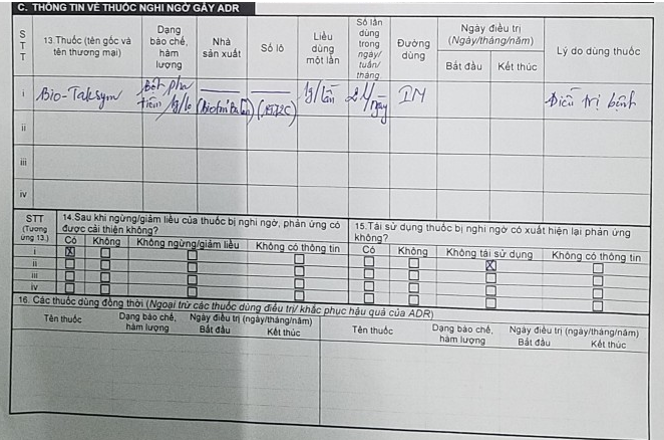 C. THÔNG TIN VỀ THUỐC NGHI NGỜ GÂY ADR
STT
13.Thuốc (tên gốc và tên thương mại)
Dạng bào chế, hàm lượng
Nhà sản xuất
Số lô
Liều dùng một lần
Số lần dùng trong ngày/ tuần/ tháng.
Đường dùng
Ngày điều trị (Ngày/tháng/năm)
Bắt đầu
Kết thúc
Lý do dùng thuốc
i
Bio-Taksym
Bột pha tiêm 1g/lọ
1g/lần
2 l/ngày
IM
Điều trị bệnh
ii
iii
iv
STT (Tương ứng 13.)
14.Sau khi ngừng/giảm liều của thuốc bị nghi ngờ, phản ứng có được cải thiện không?
Có Không Không ngừng/giảm liều Không có thông tin
15.Tái sử dụng thuốc bị nghi ngờ có xuất hiện lại phản ứng không?
Có Không Không tái sử dụng Không có thông tin
i X
ii X
iii
iv
16. Các thuốc dùng đồng thời (Ngoại trừ các thuốc dùng điều trị/ khắc phục hậu quả của ADR)
Tên thuốc
Dạng bào chế, hàm lượng
Ngày điều trị (ngày/tháng/năm)
Bắt đầu Kết thúc
Tên thuốc
Dạng bào chế, hàm lượng
Ngày điều trị (ngày/tháng/năm)
Bắt đầu Kết thúc